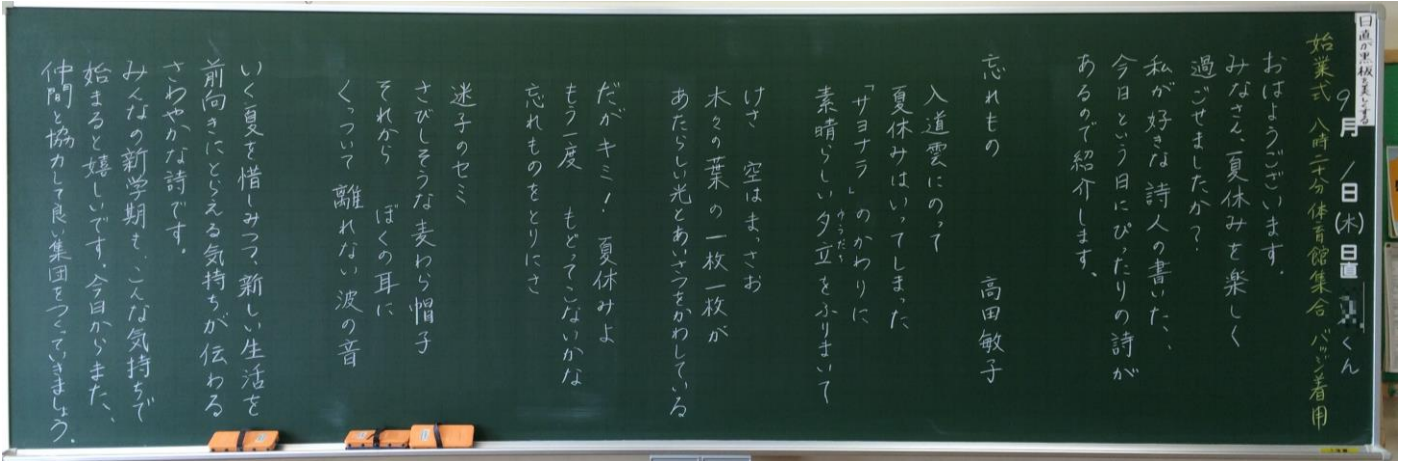 日直が黒板を美しくする
9月1日(木)日直 くん
始業式 八時二十分体育館集合 バッジ着用
おはようございます。
みなさん、夏休みを楽しく
過ごせましたか?
私が好きな詩人の書いた、
今日という日にぴったりの詩が
あるので紹介します。
忘れもの 高田敏子
入道雲にのって
夏休みはいってしまった
「サヨナラ」のかわりに
素晴らしい夕立をふりまいて
ゆうだち
けさ 空はまっさお
木々の葉の一枚一枚が
あたらしい光とあいさつをかわしている
だがキミ! 夏休みよ
もう一度 もどってこないかな
忘れものをとりにさ
迷子のセミ
さびしそうな麦わら帽子
それから ぼくの耳に
くっついて離れない波の音
いく夏を惜しみつつ、新しい生活を
前向きにとらえる気持ちが伝わる
さわやかな詩です。
みんなの新学期も、こんな気持ちで
始まると嬉しいです。今日からまた、
仲間と協力して良い集団をつくっていきましょう。